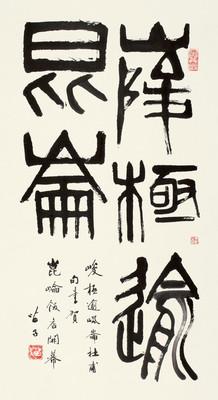 峻極逾
昆崙
峻極逾崐崙杜甫
句書賀
崑崙飯店開幕